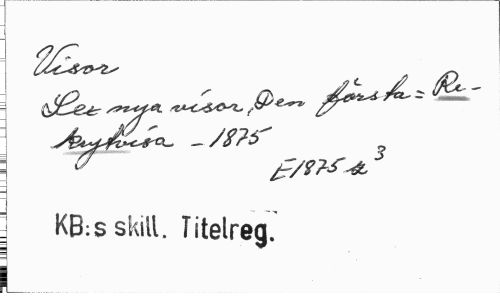 Visor
Sex nya visor, Den första = Re-
krytvisa - 1875
E1875 z³
KB:s skill. Titelreg.